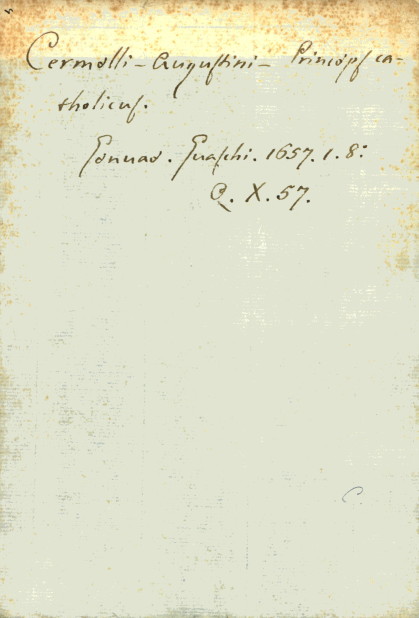 Cermelli - Augustini - Princeps ca-
tholicus.
Genuae. Guaschi. 1657. 1. 8:
Q. X. 57.
C.